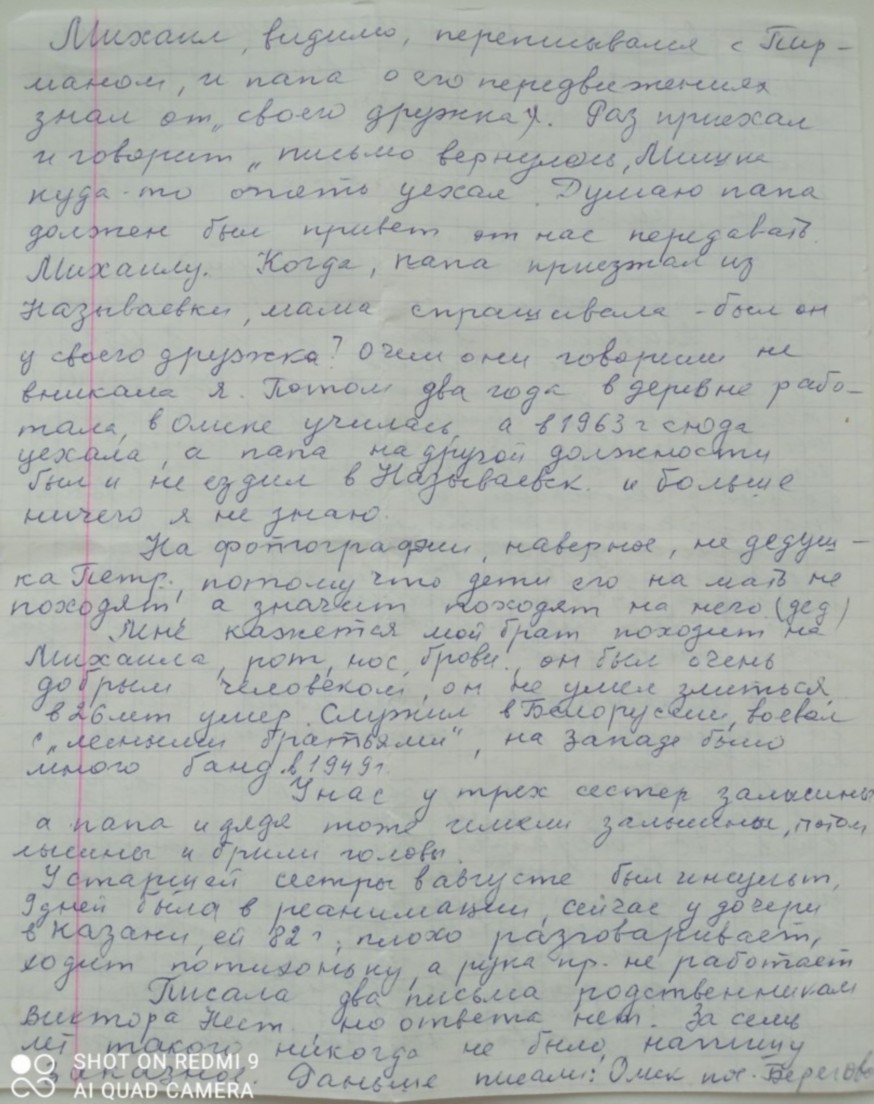 Михаил, видимо, переписывался с Пир-
маном, и папа о его передвижениях
знал от „своего дружка". Раз приехал
и говорит „письмо вернулось, Мишка
куда-то опять уехал. Думаю папа
должен был привет от нас передавать
Михаилу. Когда, папа приезжал из
Называевки, мама спрашивала - был он
у своего дружка? О чем они говорили не
вникала я. Потом два года в деревне рабо-
тала, в Омске училась, а в 1963 г сюда
уехала, а папа на другой должности
был и не ездил в Называевск. и больше
ничего я не знаю.
На фотографии, наверное, не дедуш-
ка Петр., потому что дети его на мать не
походят, а значит походят на него (дед)
Мне кажется мой брат походит на
Михаила, рот, нос, брови., он был очень
добрым человеком, он не умел злиться,
в 26 лет умер. Служил в Белоруссии, воевал
с „лесными братьями", на западе было
много банд в 1949 г
У нас у трех сестер залысины
а папа и дядя тоже имели залысины, потом
лысины и брили головы.
У старшей сестры в августе был инсульт,
9 дней была в реанимации, сейчас у дочери
в Казани, ей 82 г, плохо разговаривает,
ходит потихоньку, а рука пр. не работает
Писала два письма родственникам
Виктора Нест. но ответа нет. За семь
лет такого никогда не было, напишу
заказное. Раньше писали: Омск пос. Берегово
SHOT ON REDMI 9
AI QUAD CAMERA